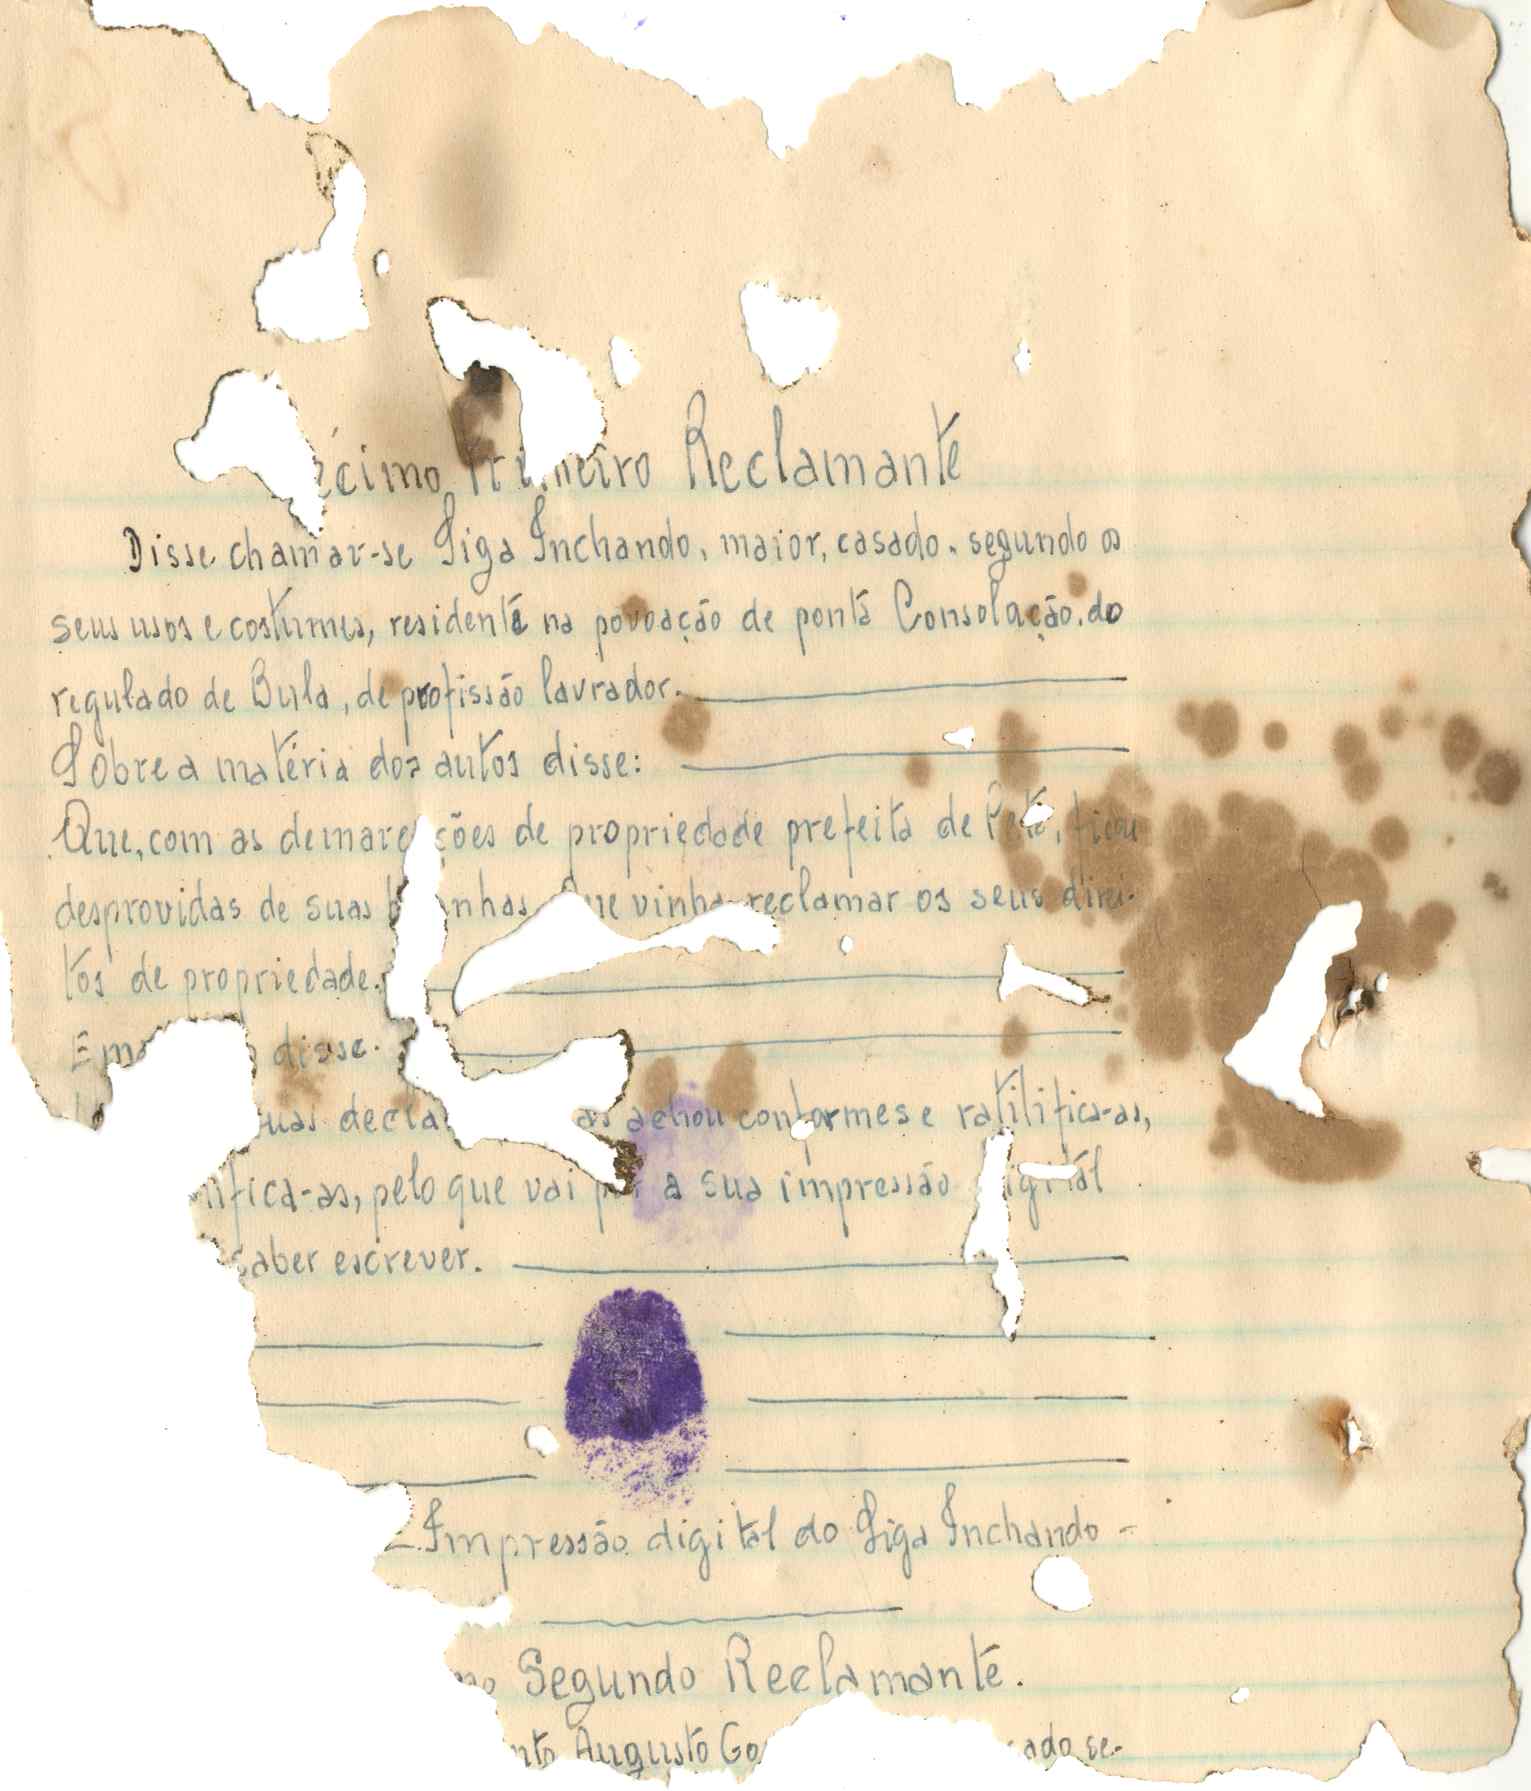 écimo Primeiro Reclamante
Disse chamar-se Siga Inchando, maior, casado, segundo os
seus usos e costumes, residente na povoação de ponta Consolação, do
regulado de Bula, de profissão lavrador.
Sobre a matéria dos autos disse:
Que, com as demarc ções de propriedade prefeita de Peta, ficou
desprovidas de suas b nhas Que vinha reclamar os seus direi-
tos de propriedade.
E ma disse.
suas decla as achou conformes e ratilifica-as,
ifica-as, pelo que vai pôr a sua impressão digitál
saber escrever.
Impressão digital do Siga Inchando -
mo Segundo Reclamante.
nto Augusto Go sado se-